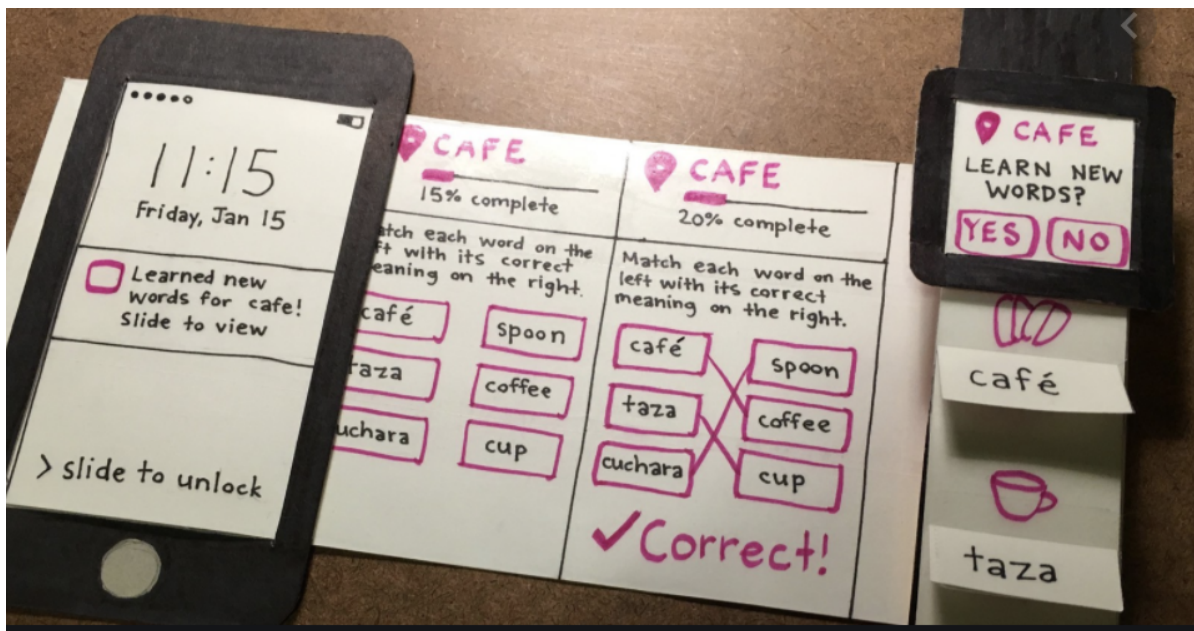 11:15
Friday, Jan 15
Learned new
words for cafe!
Slide to view
> slide to unlock
CAFE
15% complete
with its correct
on the right.
café
spoon
coffee
cup
CAFE
20% complete
Match each word on the
left with its correct
meaning on the right.
café
spoon
taza
coffee
cuchara
cup
✓Correct!
CAFE
LEARN NEW
WORDS?
YES
NO
café
taza